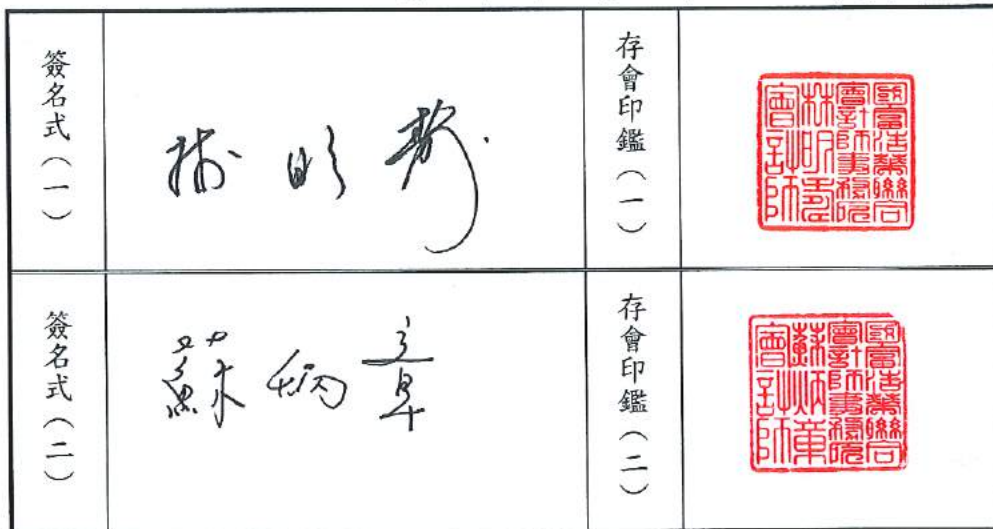 簽名式(一)
林明壽
存會印鑑(一)
國富浩華聯合
會計師事務所
林明壽
會計師
簽名式(二)
蘇炳章
存會印鑑(二)
國富浩華聯合
會計師事務所
蘇炳章
會計師